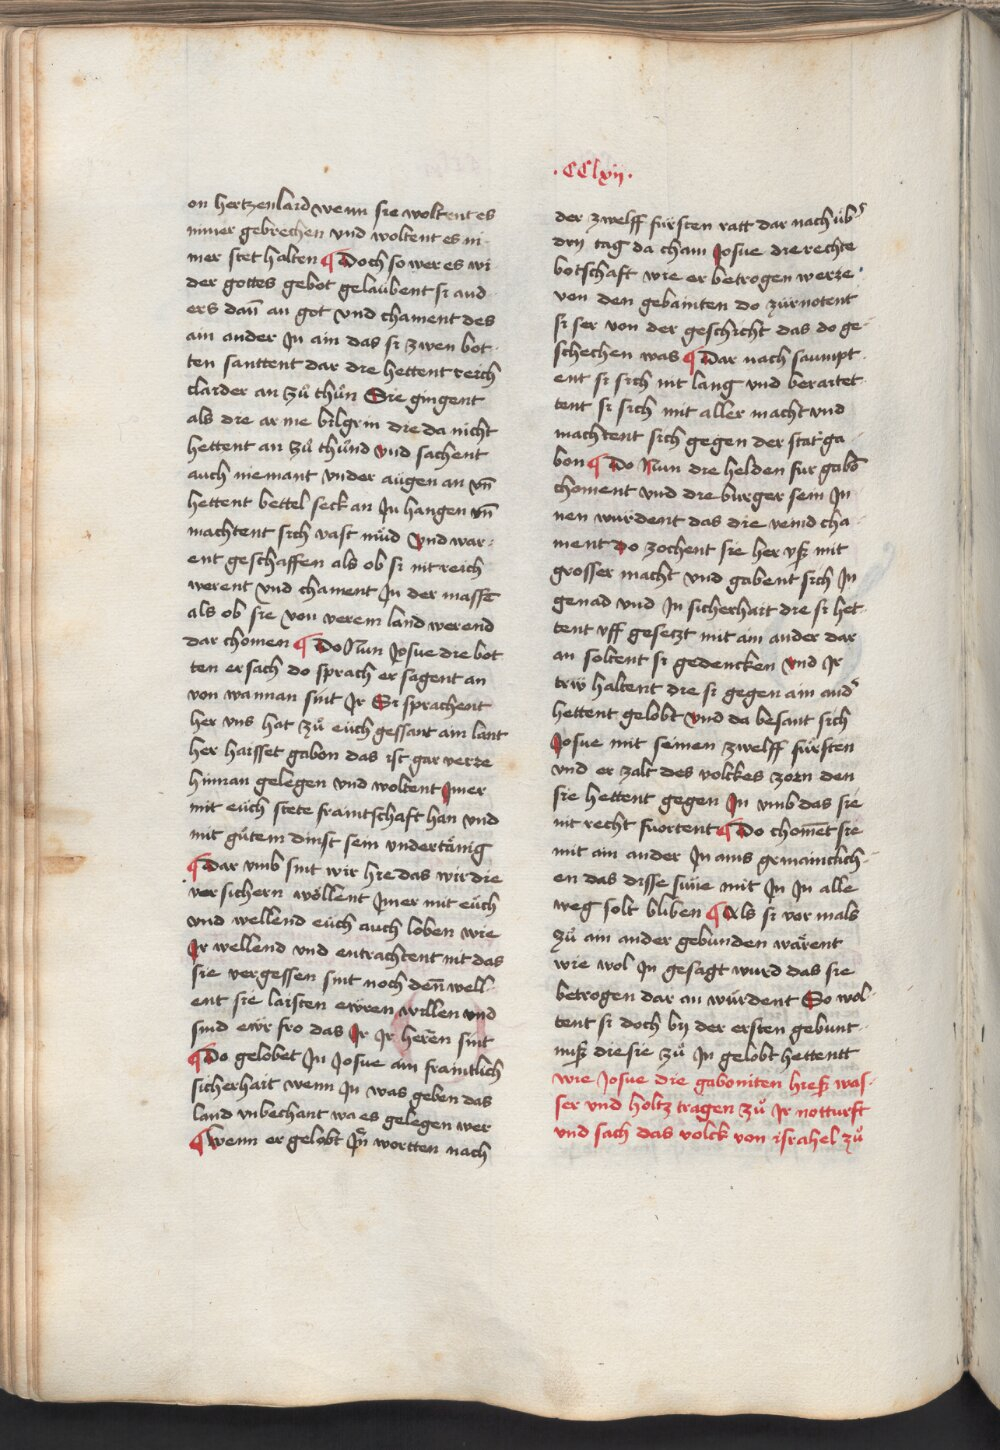 on hertzenlaid wenn sie woltent es
nimer gebrechen vnd woltent es ni-
mer stet halten ¶ Doch so wer es wi
der gottes gebot gelaübent si and
ers dañ an got vnd chament des
ain ander Jn ain das si zwen bot-
ten santtent dar die hettent reich
clarder an zů thůn Die gingent
als die arme bilgrin die da nicht
hettent an zů thůnd vnd sachent
auch niemant vnder augen an vn̄
hettent bettel seck an Jn hangen vn̄
machtent sich vast můd Vnd war-
ent geschaffen als ob si nit reich
werent vnd chament Jn der masse
als ob sie von verem land werend
dar chomen ¶ Do Nun Josue die bot
ten ersach do sprach er sagent an
von wannan sint Jr Si sprachent
her vns hat zů eüch gessant ain lant
her haisset gabon das ist gar verre
hinnan gelegen vnd woltent Jmer
mit eüch stete fraintschaft han vnd
mit gůtem dinst sein vndertänig
¶ Dar vmb sint wir hie das wir die
versichern wöllent Jmer mit eüch
vnd wellend eüch auch loben wie
Jr wellend vnd entrachtent nit das
sie vergessen sint noch den̄ well-
ent sie laisten ewren willen vnd
sind ewr fro das Jr Jr herēn sint
¶ Do gelobet Jn Josue ain fraintlich
sicherhait wenn Jn was geben das
land vnbechant wa es gelegen wer
¶ wenn er gelobt Jn wortten nach
·CClxij·
der zwelff fürsten ratt dar nach üb͛
drij tag da cham Josue die rechte
botschaft wie er betrogen werre
von den gebainten do zürnotent
si ser von der geschicht das do ge-
schechen was ¶ Dar nach saumpt-
ent si sich nit lang vnd beraitet-
tent si sich mit aller macht vnd
machtent sich gegen der stat ga-
bon ¶ Do Nun die helden für gabō
choment vnd die burger sein Jn
nen wurdent das die veind cha-
ment do zochent sie her vß mit
grosser macht vnd gabent sich Jn
genad vnd Jn sicherhait die si het-
tent vff gesetzt mit ain ander dar
an soltent si gedencken Vnd Jr
trw haltent die si gegen ain and͛
hettent gelobt Vnd da besant sich
Josue mit seinen zwelff fürsten
vnd er zalt des volckes zorn den
sie hettent gegen Jn vmb das sie
nit recht fuortent ¶ Do chomēt sie
mit ain ander Jn ains gemainclich-
en das disse süne mit Jn Jn alle
weg solt bliben ¶ Als si vor mals
zů ain ander gebunden wärent
wie wol Jn gesagt wurd das sie
betrogen dar an würdent So wol-
tent si doch bij der ersten gebunt-
nuß die sie zů Jn gelobt hettentt
wie Josue die gaboniten hieß was-
ser vnd holtz tragen zů Jr notturft
vnd sach das volck von israhel zů